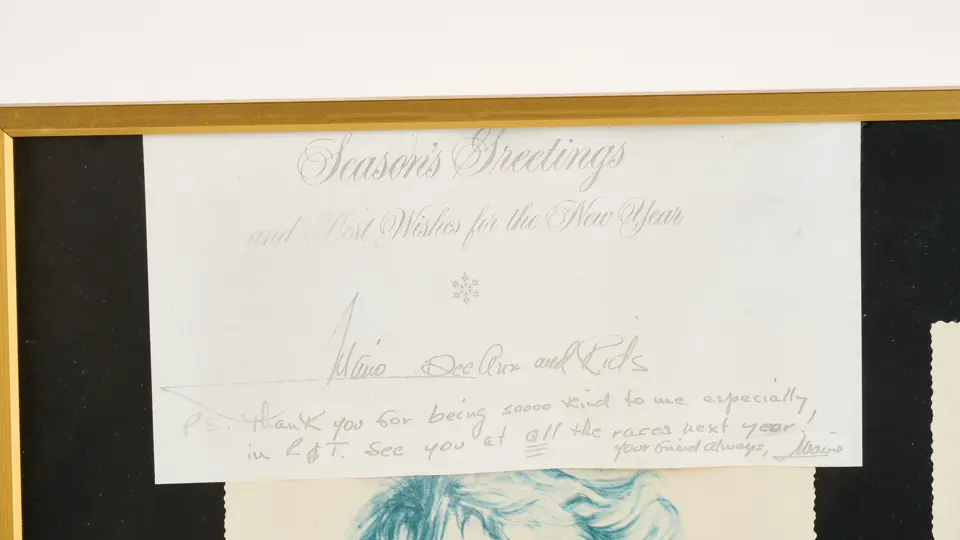 Season's Greetings
and Best Wishes for the New Year
Mario Dee Ann and Kids
P.S. Thank you for being soooo kind to me especially,
in R&T. See you at all the races next year,
your friend always, Mario